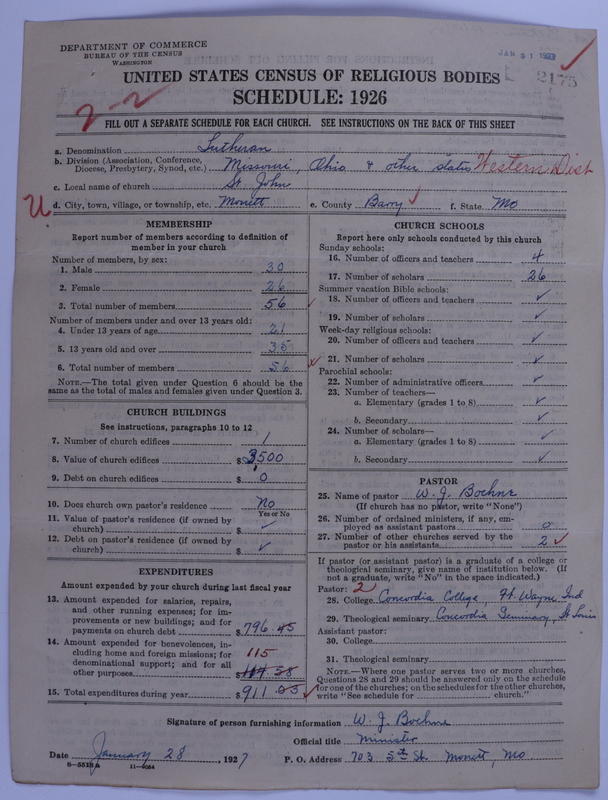 DEPARTMENT OF COMMERCE
BUREAU OF THE CENSUS
WASHINGTON
JAN 31 1927
2175
UNITED STATES CENSUS OF RELIGIOUS BODIES
SCHEDULE: 1926
2-2
FILL OUT A SEPARATE SCHEDULE FOR EACH CHURCH. SEE INSTRUCTIONS ON THE BACK OF THIS SHEET
a. Denomination Lutheran
b. Division (Association, Conference, Diocese, Presbytery, Synod, etc.) Missouri, Ohio & other states Western Dist
c. Local name of church St. John
U d. City, town, village, or township, etc. Monett e. County Barry f. State Mo
MEMBERSHIP
Report number of members according to definition of
member in your church
Number of members, by sex:
1. Male 30
2. Female 26
3. Total number of members 56
Number of members under and over 13 years old:
4. Under 13 years of age 21
5. 13 years old and over 35
6. Total number of members 56
NOTE.—The total given under Question 6 should be the
same as the total of males and females given under Question 3.
CHURCH BUILDINGS
See instructions, paragraphs 10 to 12
7. Number of church edifices 1
8. Value of church edifices $3500
9. Debt on church edifices $0
10. Does church own pastor's residence No
Yes or No
11. Value of pastor's residence (if owned by
church) $ ✓
12. Debt on pastor's residence (if owned by
church) $ ✓
EXPENDITURES
Amount expended by your church during last fiscal year
13. Amount expended for salaries, repairs,
and other running expenses; for im-
provements or new buildings; and for
payments on church debt $796.45
14. Amount expended for benevolences, in-
cluding home and foreign missions; for
denominational support; and for all
115
other purposes $
15. Total expenditures during year $911.05
CHURCH SCHOOLS
Report here only schools conducted by this church
Sunday schools:
16. Number of officers and teachers 4
17. Number of scholars 26
Summer vacation Bible schools:
18. Number of officers and teachers ✓
19. Number of scholars ✓
Week-day religious schools:
20. Number of officers and teachers ✓
21. Number of scholars ✓
Parochial schools:
22. Number of administrative officers ✓
23. Number of teachers—
a. Elementary (grades 1 to 8) ✓
b. Secondary ✓
24. Number of scholars—
a. Elementary (grades 1 to 8) ✓
b. Secondary ✓
PASTOR
25. Name of pastor W. J. Boehne
(If church has no pastor, write "None")
26. Number of ordained ministers, if any, em-
ployed as assistant pastors 0
27. Number of other churches served by the
pastor or his assistants 2 ✓
If pastor (or assistant pastor) is a graduate of a college or
theological seminary, give name of institution below. (If
not a graduate, write "No" in the space indicated.)
Pastor: 2
28. College Concordia College Ft. Wayne, Ind
29. Theological seminary Concordia Seminary, St Louis
Assistant pastor:
30. College
31. Theological seminary
NOTE.—Where one pastor serves two or more churches,
Questions 28 and 29 should be answered only on the schedule
for one of the churches; on the schedules for the other churches,
write "See schedule for church."
Signature of person furnishing information W. J. Boehne
Official title Minister
Date January 28, 1927 P. O. Address 703 5th St. Monett, Mo
8-5518a 11-9084